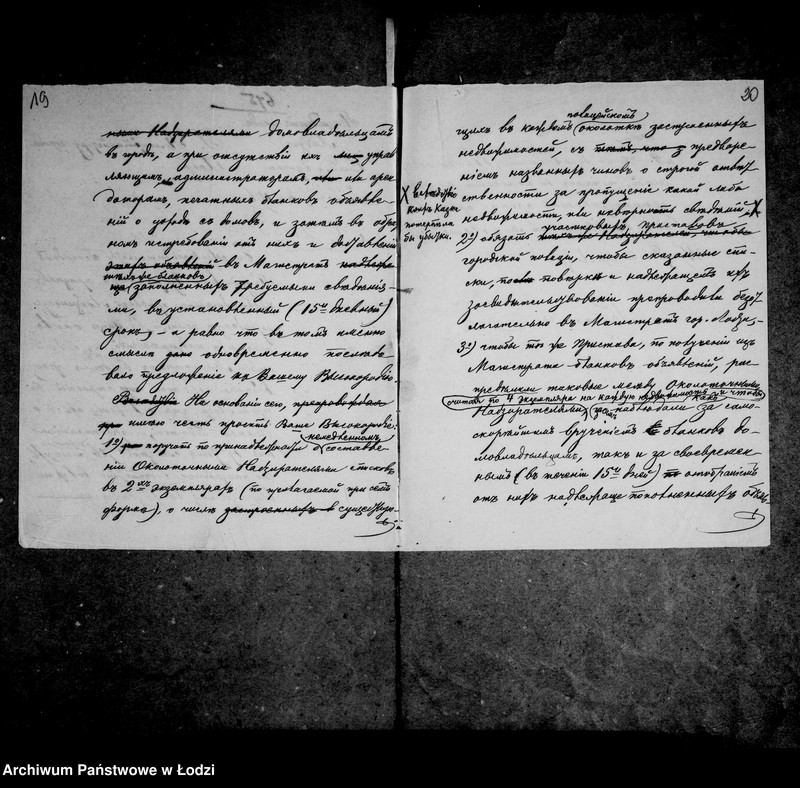 19
645
ными Надзирателями домовладельцамъ
въ городѣ, а при отсутствіи ихъ управ
ляющимъ, администраторамъ, или арен
даторамъ, печатныхъ бланковъ объявле
ній о доходѣ съ домовъ, и затѣмъ въ обрат
номъ истребованіи отъ нихъ и доставленіи
этихъ объявленій въ Магистратъ
бланковъ
заполненныхъ требуемыми свѣдѣнія
ми, въ установленный (15ти дневный)
срокъ, а равно что въ томъ именно
смыслѣ дано одновременно послѣдо
вало предложеніе къ Вашему Высокородію.
На основаніи сего,
имѣю честь просить Ваше Высокородіе:
немедленномъ
1е) поручить по принадлежности о составле
ніи Околоточными Надзирателями списковъ
въ 2хъ экземплярахъ (по прилагаемой при семъ
формѣ), о числѣ застроенныхъ въ существую-
20
полицейскомъ
щихъ въ каждомъ околоткѣ застроенныхъ
недвижимостей, съ предваре
ніемъ названныхъ чиновъ о строгой отвѣт
ственности за пропущеніе какой либо
недвижимости, или невѣрность свѣдѣній
Казна
потерпѣла
бы убытки.
участковыхъ приставовъ
2е) обязать
городской полиціи, чтобы сказанные спи
ски, по повѣркѣ и надлежащемъ ихъ
засвидѣтельствованіи препроводили безот
лагательно въ Магистратъ гор. Лодзи,
3е) чтобы тѣ же Пристава, по полученіи изъ
Магистрата бланковъ объявленій, рас
предѣлили таковые между Околоточными
считая по 4 экземпляра на каждую недвижимость и чтобы
Надзирателями, наблюдали за само
скорѣйшимъ врученіемъ бланковъ до
мовладѣльцамъ, такъ и за своевремен
нымъ (въ теченіи 15ти дней) отобраніемъ
отъ нихъ надлежаще пополненныхъ объяв
Archiwum Państwowe w Łodzi